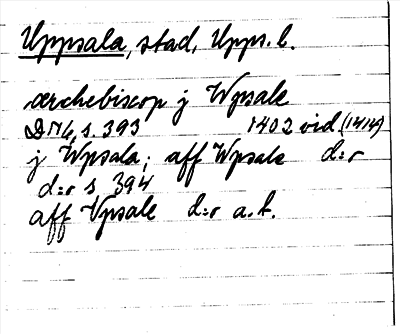 Uppsala, stad, Upps. l.
ærchebiscop j Wpsale
DN 4, s. 393 1402 vid (1414)
j Wpsala; aff Wpsale d:o
d:o s 394
aff Vpsale d:o a.k.